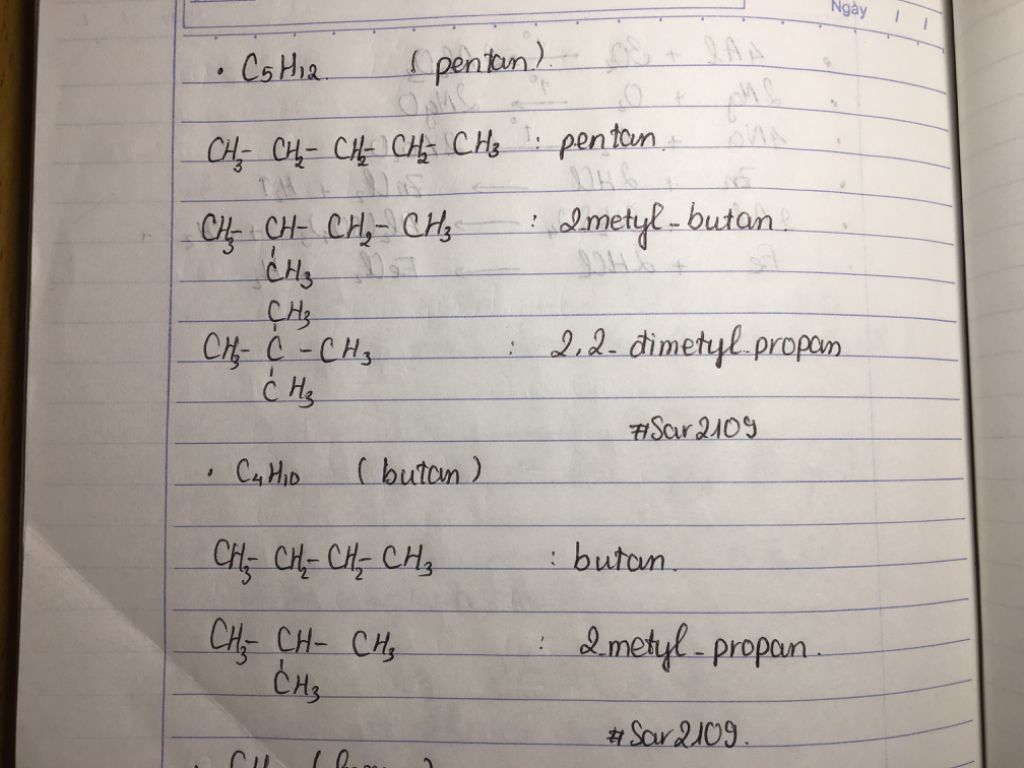 Ngày
• C5H12 (pentan)
CH3- CH2- CH2- CH2- CH3 : pentan
CH3- CH- CH2- CH3 : 2metyl-butan.
CH3
CH3
CH3- C - CH3 : 2,2- dimetyl.propan
CH3
#Sar2109
• C4H10 (butan)
CH3- CH2- CH2- CH3 : butan.
CH3- CH- CH3 : 2metyl-propan.
CH3
#Sar2109.